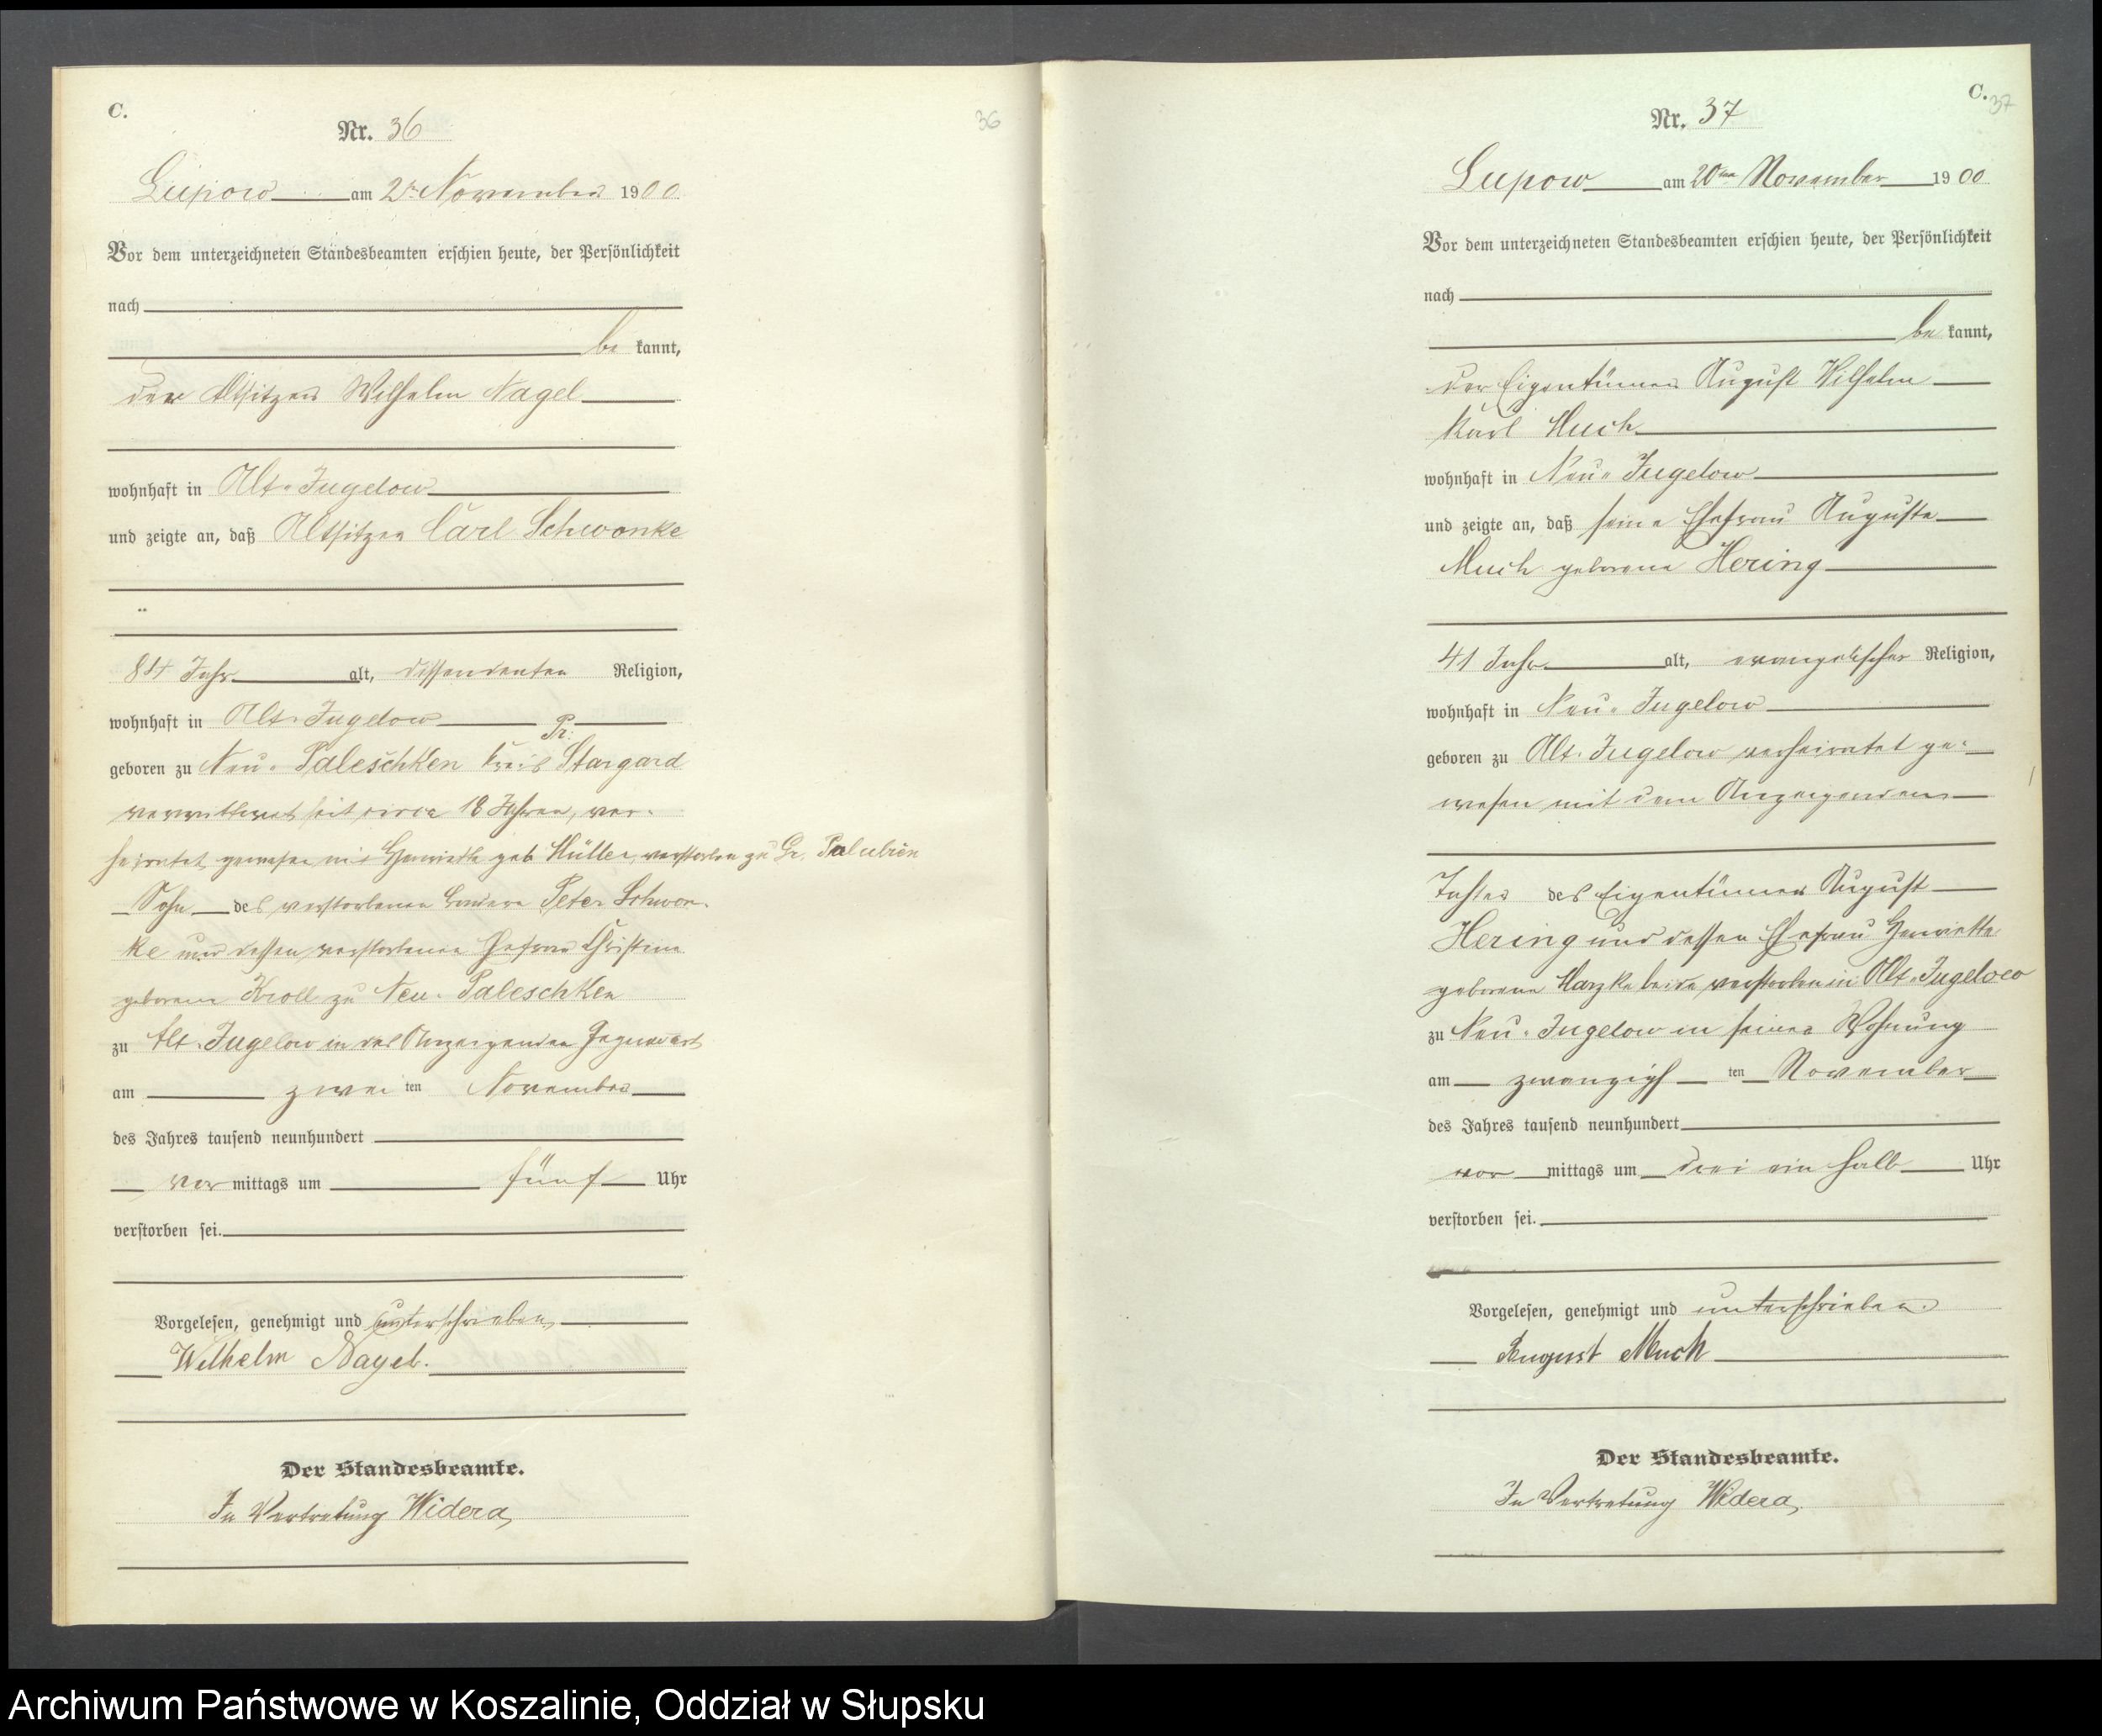 C.
Nr. 36
36
Lupow am 2ten November 1900
Vor dem unterzeichneten Standesbeamten erschien heute, der Persönlichkeit
nach
be kannt,
der Altsitzer Wilhelm Nagel
wohnhaft in Alt-Jugelow
und zeigte an, daß Altsitzer Carl Schwonke
84 Jahr alt, dissendenten Religion,
wohnhaft in Alt-Jugelow
Pr:
geboren zu Neu-Paleschken Kreis Stargard
verwittwet seit circa 18 Jahren, ver-
heiratet gewesen mit Henriette geb Müller, verstorben zu Gr.
Sohn des verstorbenen Peter Schwon-
ke und dessen verstorbenen Ehefrau Christine
geborene Kroll zu Neu-Paleschken
zu Alt-Jugelow in des Anzeigenden Gegenwart
am zwei ten November
des Jahres tausend neunhundert
vor mittags um fünf Uhr
verstorben sei.
Vorgelesen, genehmigt und unterschrieben
Wilhelm Nagel.
Der Standesbeamte.
In Vertretung Widera
C.
37
Nr. 37
Lupow am 20ten November 1900
Vor dem unterzeichneten Standesbeamten erschien heute, der Persönlichkeit
nach
be kannt,
der Eigentümer August Wilhelm
Karl Much
wohnhaft in Neu-Jugelow
und zeigte an, daß seine Ehefrau Auguste
Much geborene Hering
41 Jahr alt, evangelischer Religion,
wohnhaft in Neu-Jugelow
geboren zu Alt-Jugelow verheiratet ge-
wesen mit dem Anzeigenden
Tochter des Eigentümer August
Hering und dessen Ehefrau Henriette
geborene Harzke beide verstorben in Alt-Jugelow
zu Neu-Jugelow in seiner Wohnung
am zwanzigst ten November
des Jahres tausend neunhundert
vor mittags um drei ein halb Uhr
verstorben sei.
Vorgelesen, genehmigt und unterschrieben.
August Much
Der Standesbeamte.
In Vertretung Widera
Archiwum Państwowe w Koszalinie, Oddział w Słupsku